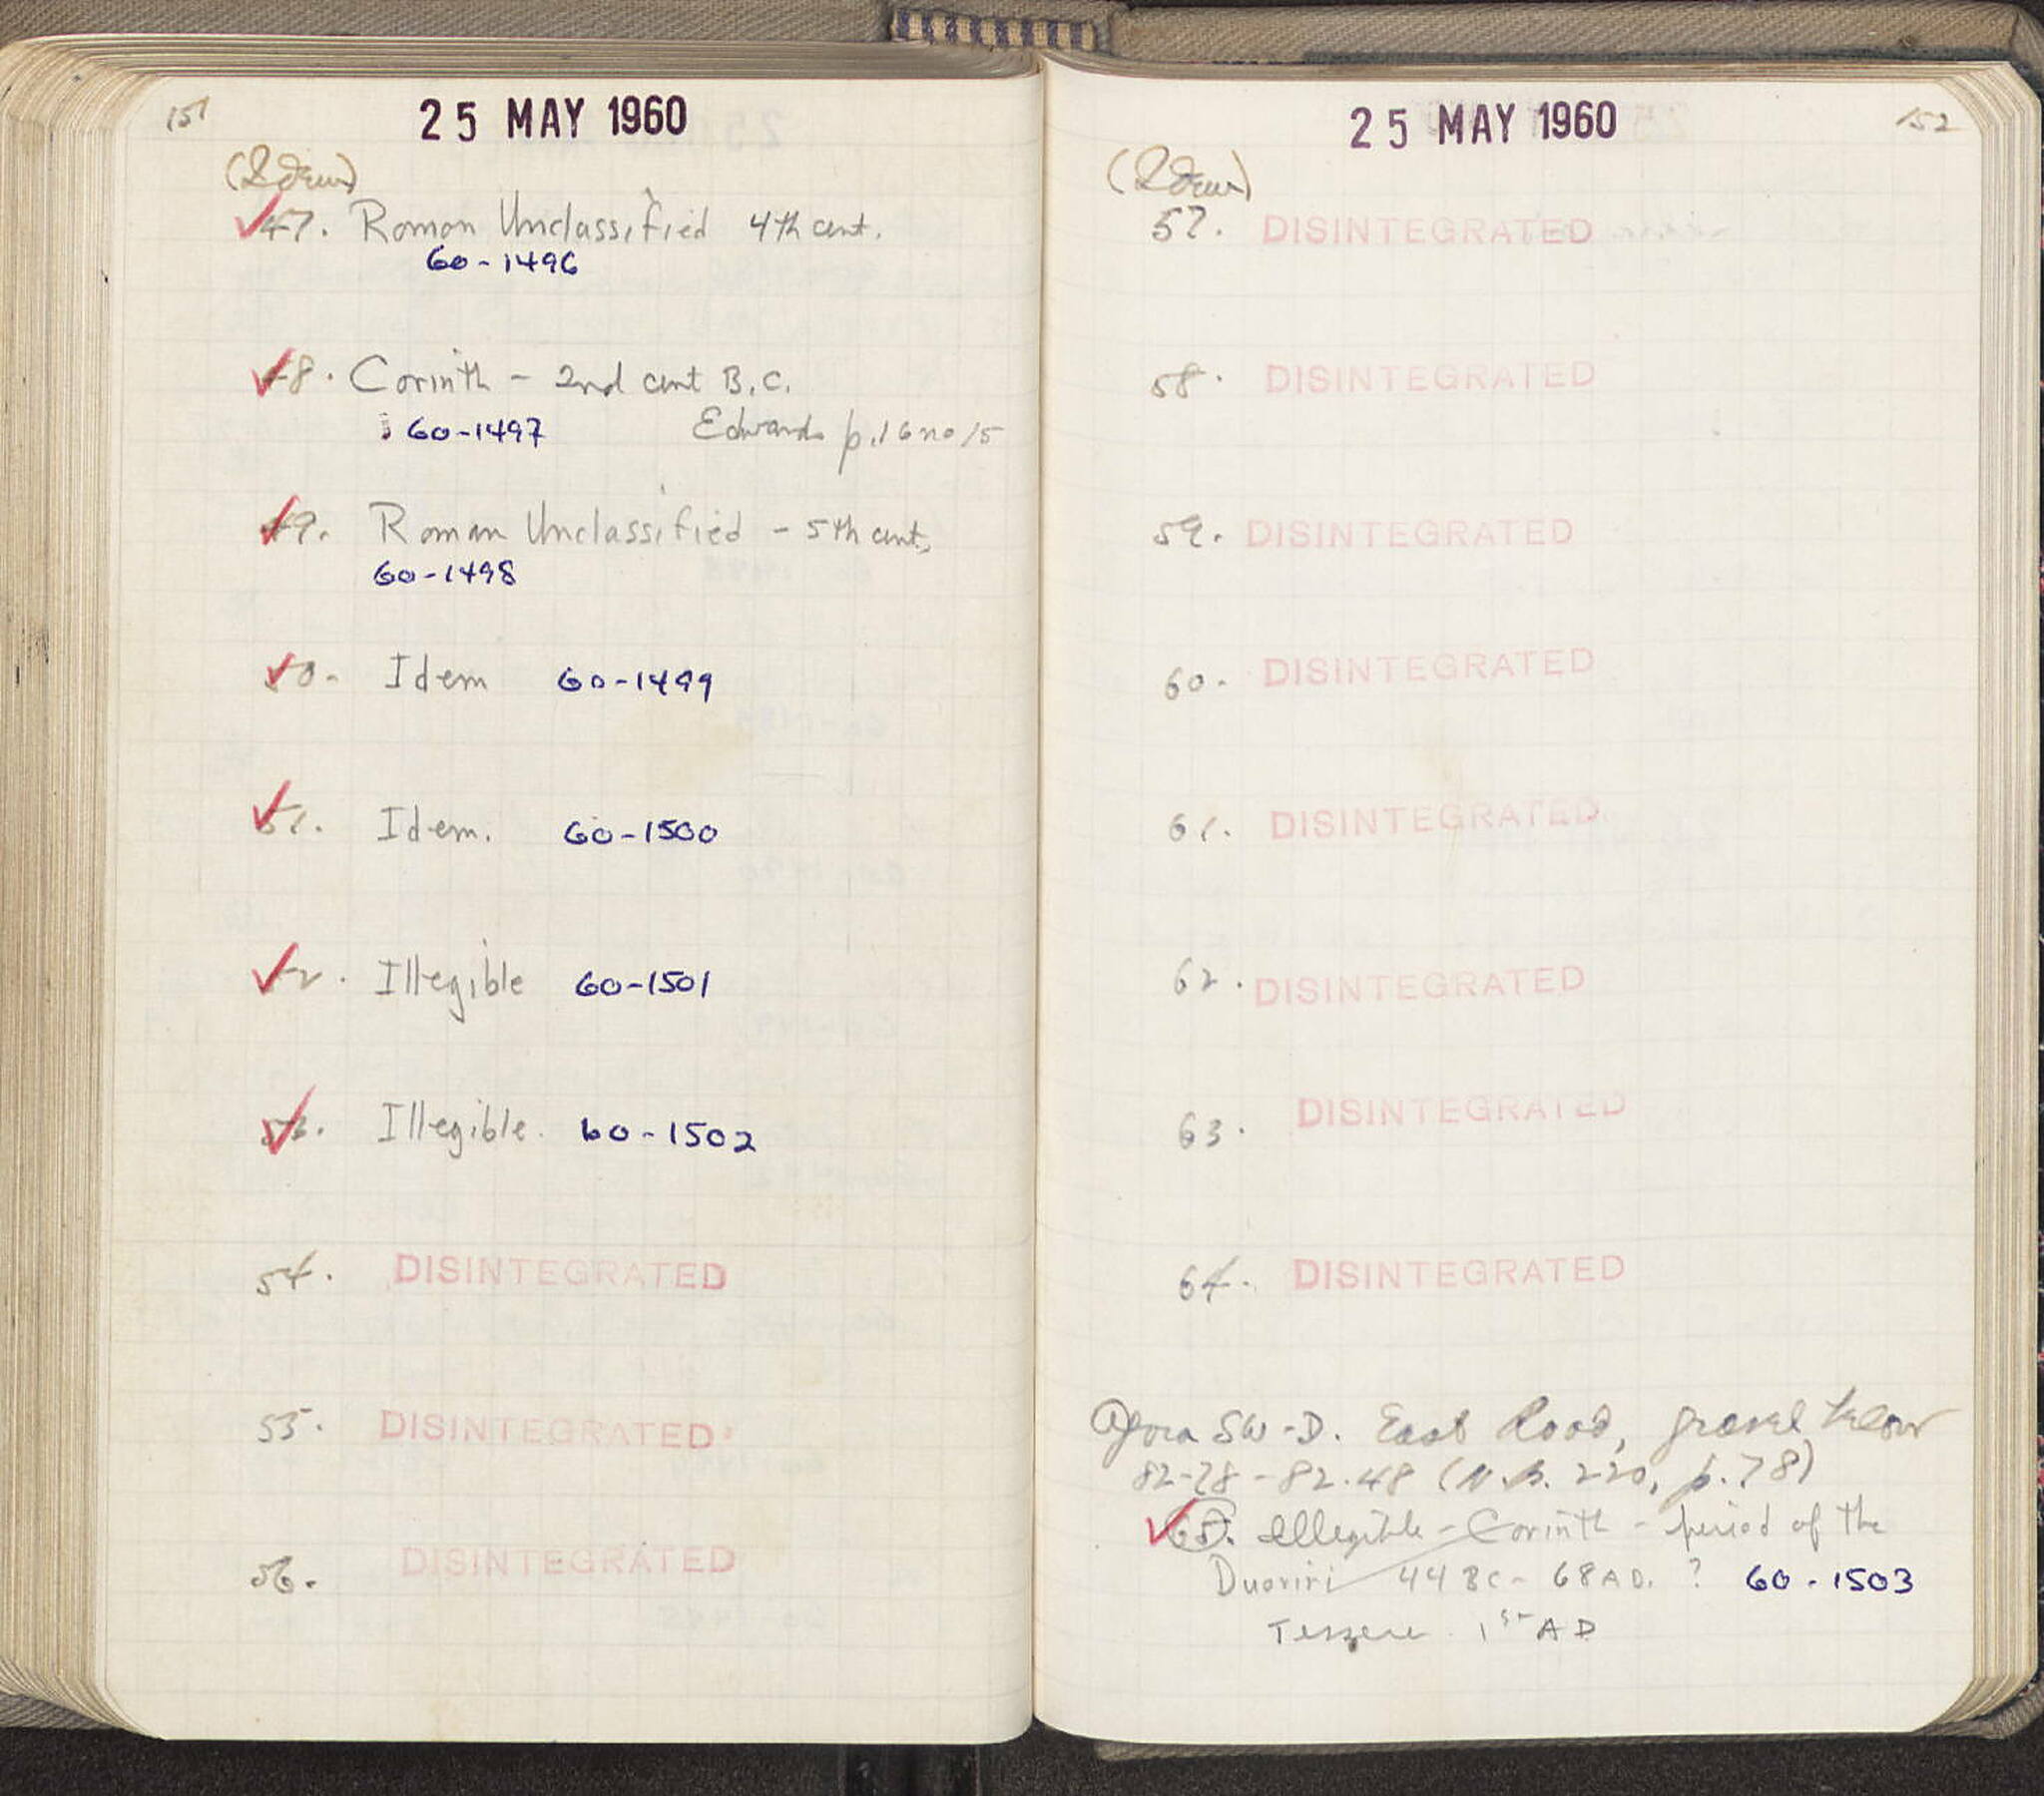 151
25 MAY 1960
(Idem)
47. Roman Unclassified 4th cent.
60-1496
48. Corinth - 2nd cent B.C.
60-1497 Edwards p.16 no 15
49. Roman Unclassified - 5th cent.
60-1498
50. Idem 60-1499
51. Idem. 60-1500
52. Illegible 60-1501
53. Illegible. 60-1502
54. DISINTEGRATED
55. DISINTEGRATED
56. DISINTEGRATED
152
25 MAY 1960
(Idem)
57. DISINTEGRATED
58. DISINTEGRATED
59. DISINTEGRATED
60. DISINTEGRATED
61. DISINTEGRATED
62. DISINTEGRATED
63. DISINTEGRATED
64. DISINTEGRATED
Agora SW-D. East Road, gravel below
82.48 (N.B. 220, p.78)
65. Illegible - Corinth - period of the
Duoviri 44 BC - 68 AD. ? 60-1503
Tessera 1st AD